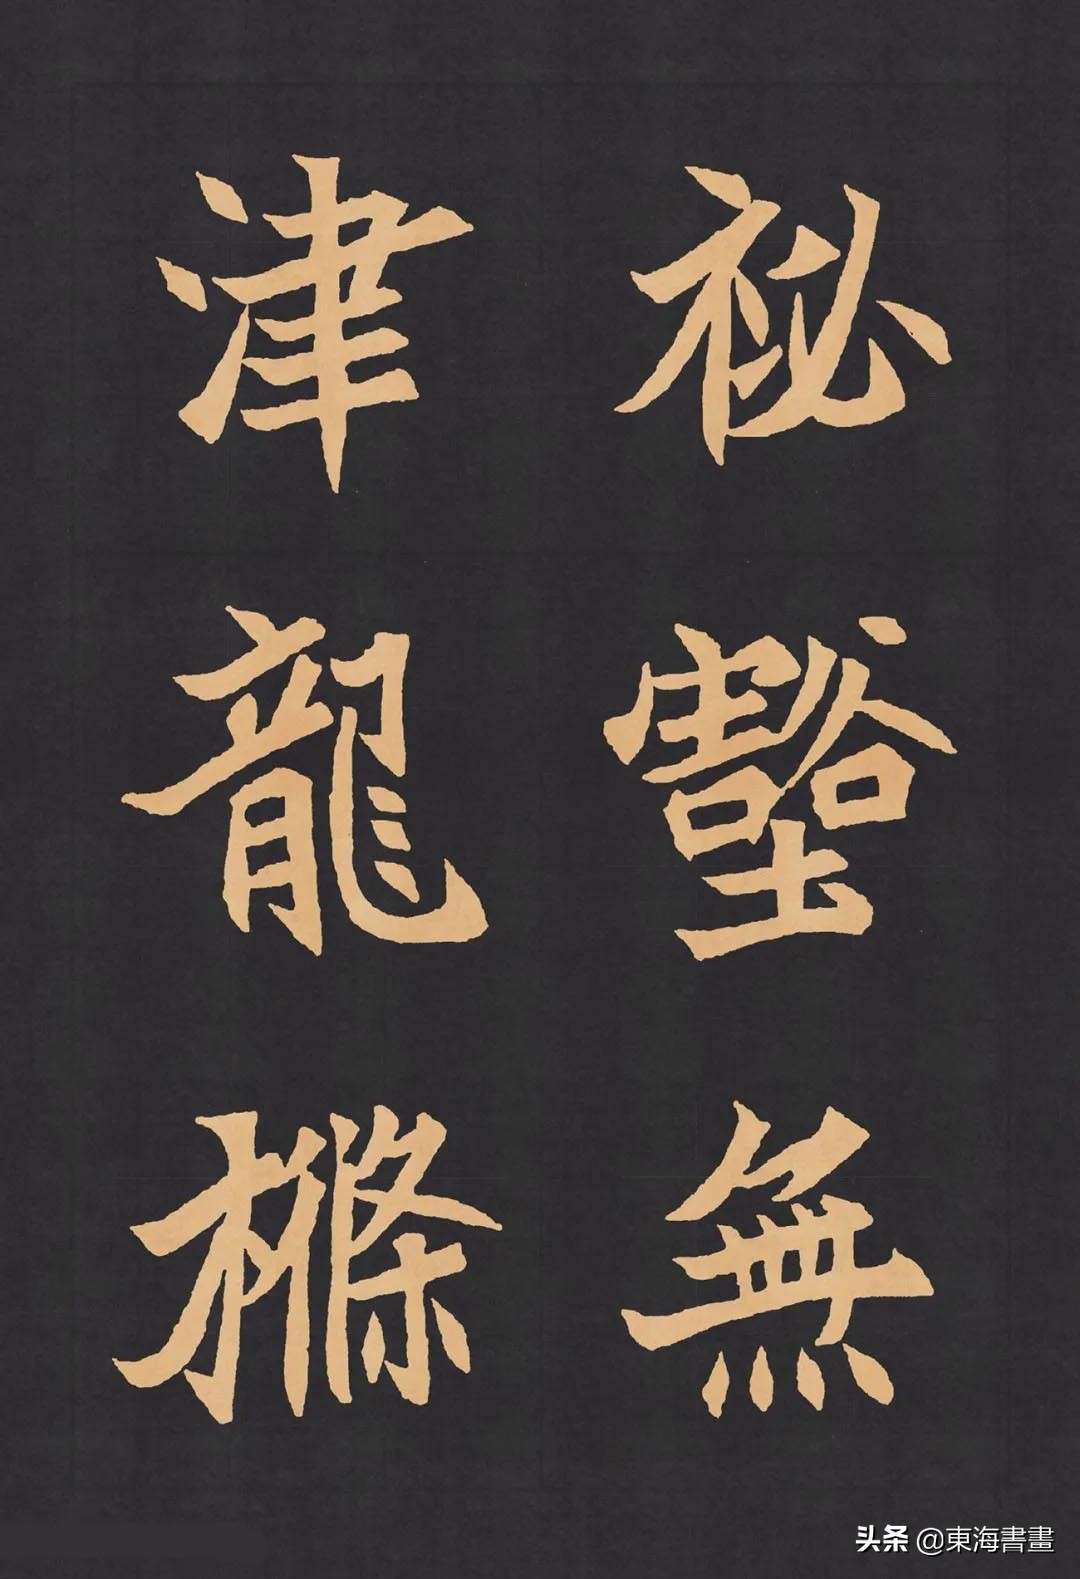 祕壑無
津龍樤
头条 @東海書畫